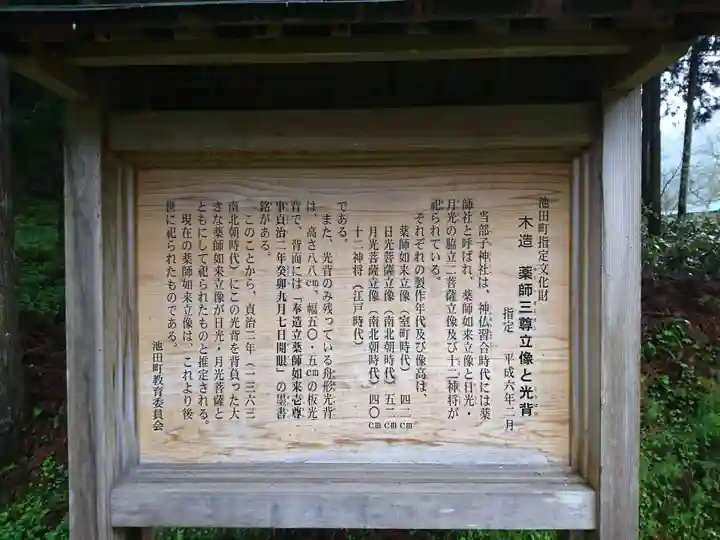 池田町指定文化財
木造 薬師三尊立像と光背
指定 平成六年二月
当部子神社は、神仏習合時代には薬
師社と呼ばれ、薬師如来立像と日光・
月光の脇立二菩薩立像及び十二神将が
祀られている。
それぞれの製作年代及び像高は、
薬師如来立像(室町時代) 四二㎝
日光菩薩立像(南北朝時代)五二㎝
月光菩薩立像(南北朝時代)四〇㎝
十二神将(江戸時代)
である。
また、光背のみ残っている舟形光背
は、高さ八八㎝、幅五〇・五㎝の板光
背で、背面には「奉造立薬師如来壱尊
事貞治二年癸卯九月七日開眼」の墨書
銘がある。
このことから、貞治二年(一三六三
南北朝時代)にこの光背を背負った大
きな薬師如来立像が日光・月光菩薩と
ともにして祀られたものと推定される。
現在の薬師如来立像は、これより後
世に祀られたものである。
池田町教育委員会